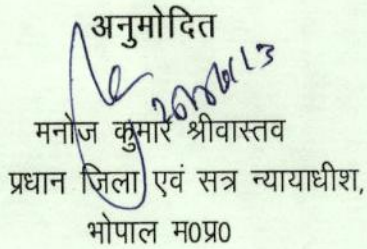 अनुमोदित
मनोज कुमार श्रीवास्तव
प्रधान जिला एवं सत्र न्यायाधीश,
भोपाल म0प्र0